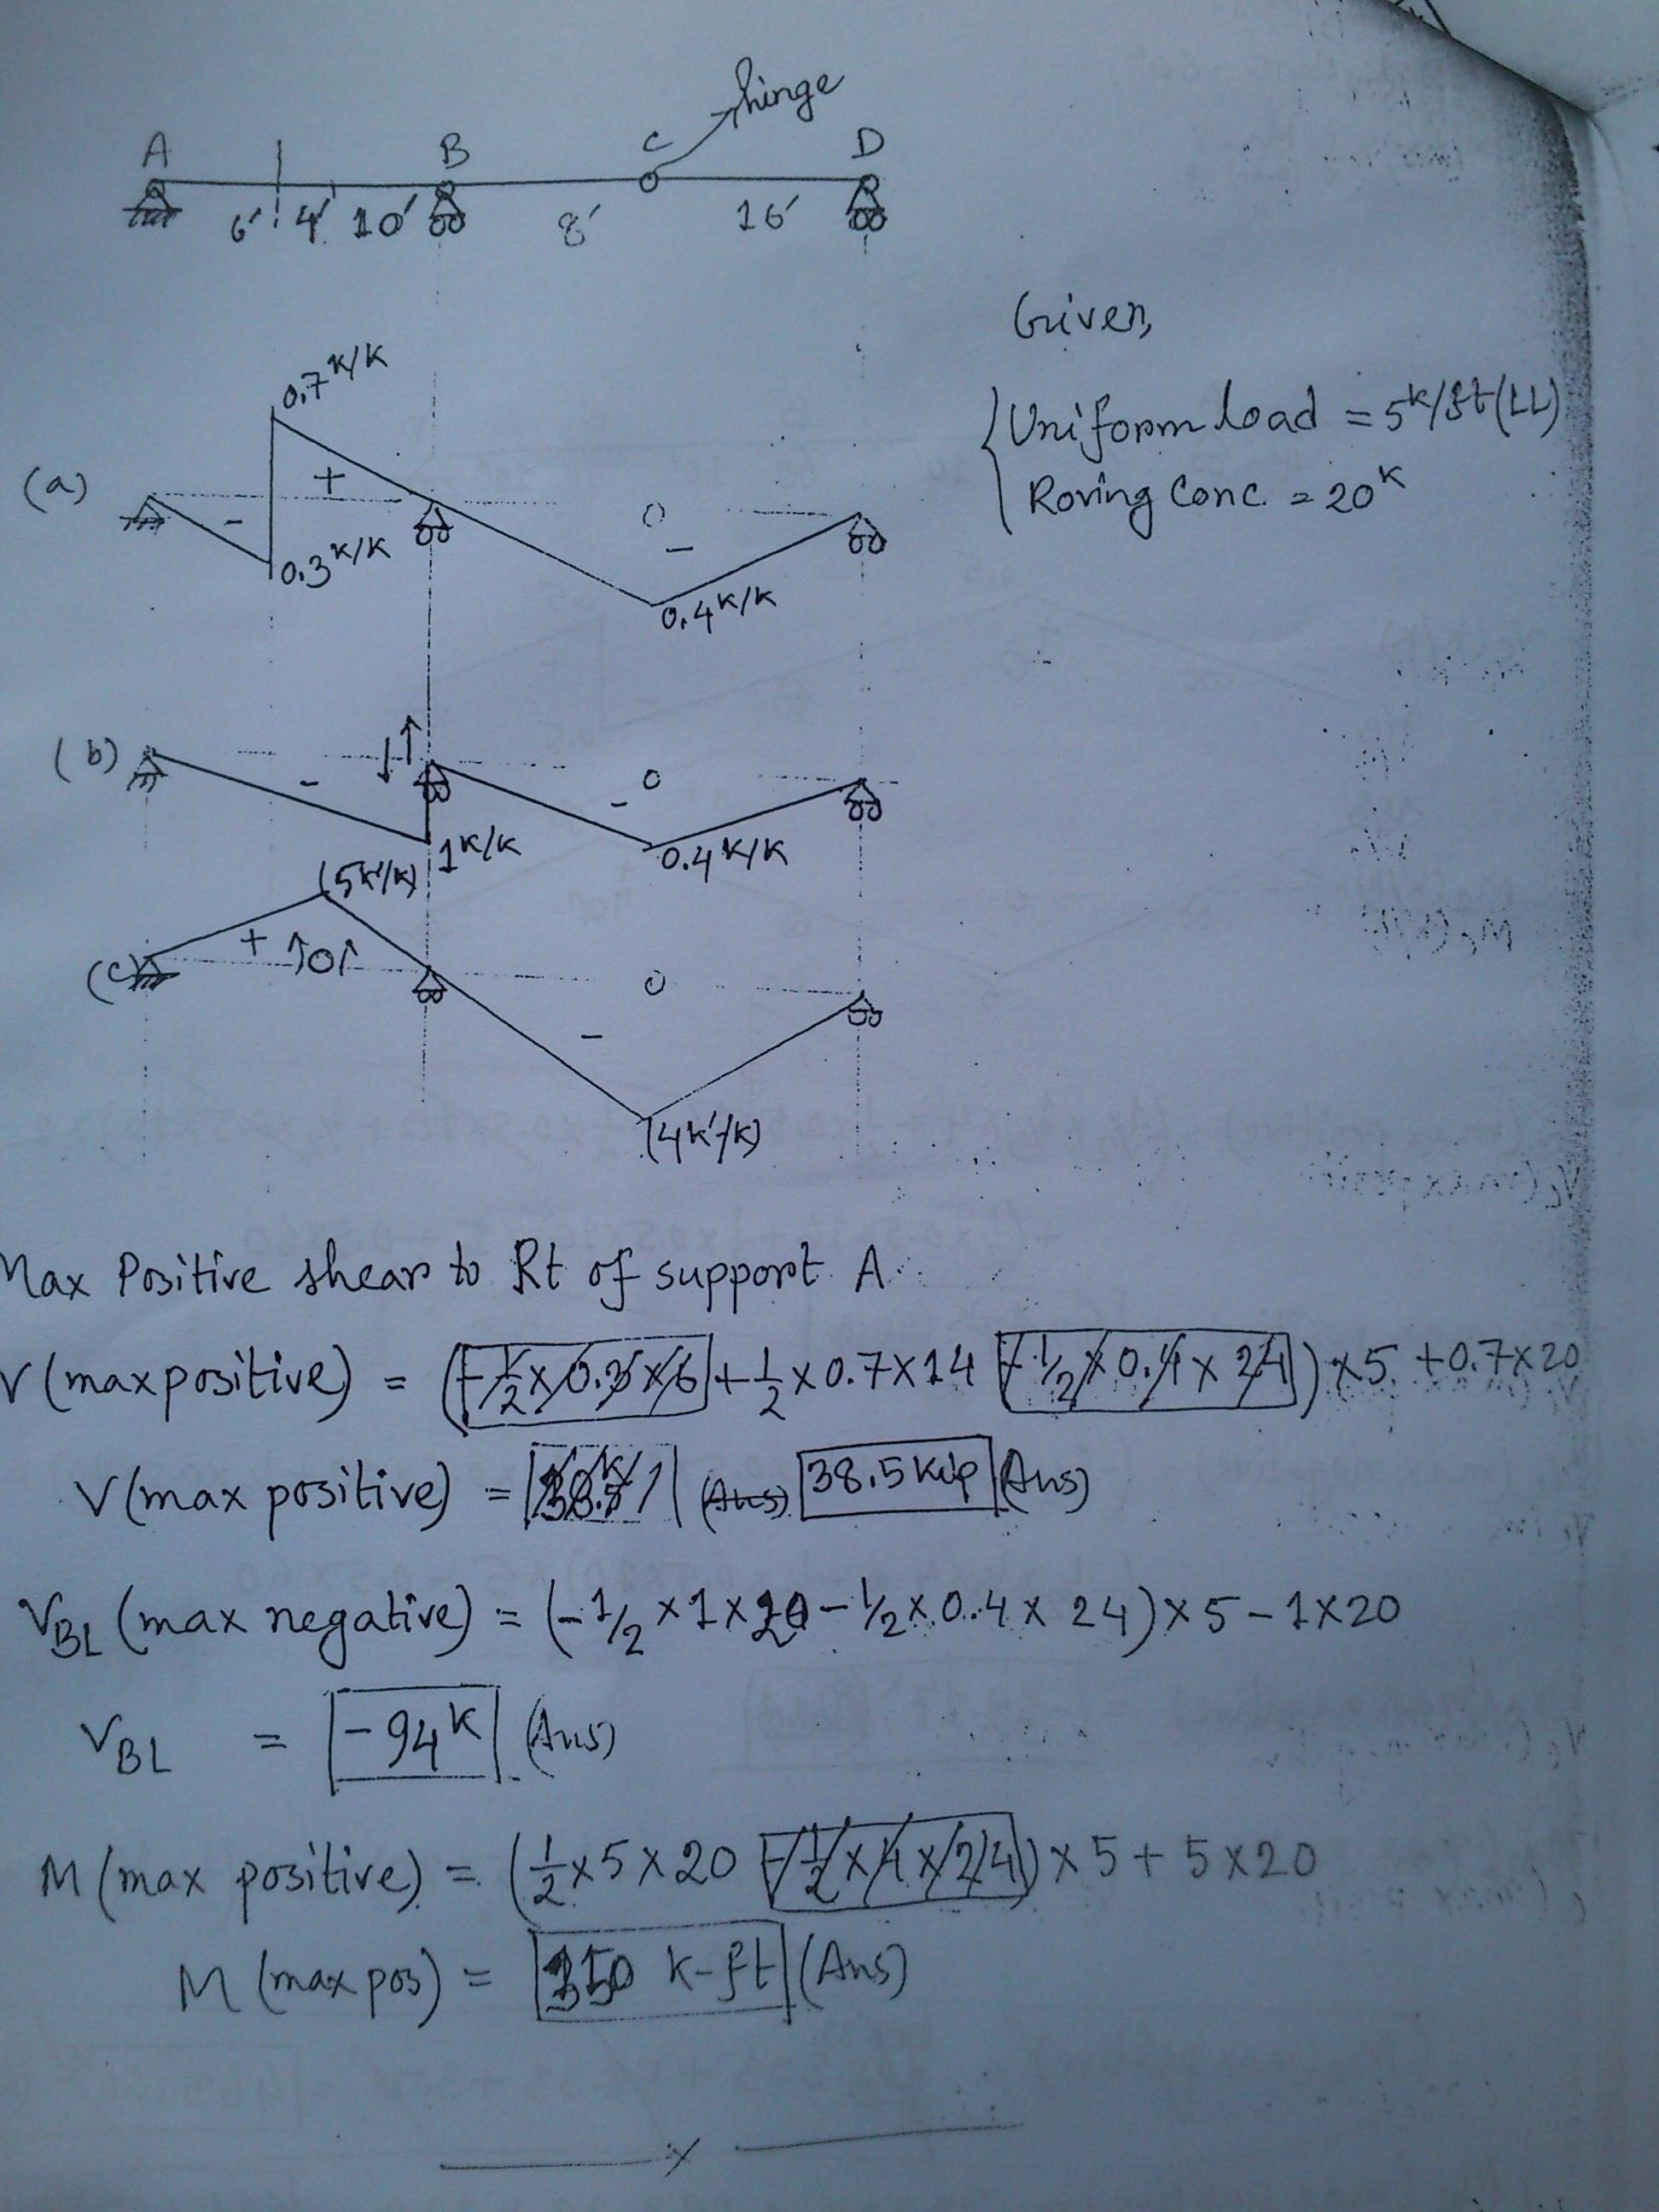 hinge
A B C D
6' 4' 10' 8' 16'
Given,
Uniform load = 5k/ft (LL)
Roving Conc = 20k
(a)
0.7 k/k
+
-
0.3 k/k
-
0.4 k/k
(b)
-
-
1 k/k
0.4 k/k
(c)
(5k'/k)
+
-
(4k'/k)
Max Positive shear to Rt of support A
V (max positive) = (-1/2 x 0.3 x 6 + 1/2 x 0.7 x 14 - 1/2 x 0.4 x 24) x 5 + 0.7 x 20
V (max positive) = (Ans) 38.5 Kip (Ans)
VBL (max negative) = (-1/2 x 1 x 20 - 1/2 x 0.4 x 24) x 5 - 1 x 20
VBL = -94k (Ans)
M (max positive) = (1/2 x 5 x 20 - 1/2 x 4 x 24) x 5 + 5 x 20
M (max pos) = 350 k-ft (Ans)
x